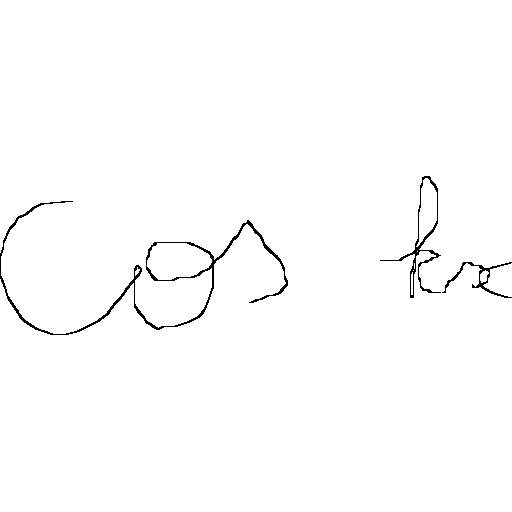 Cos kx